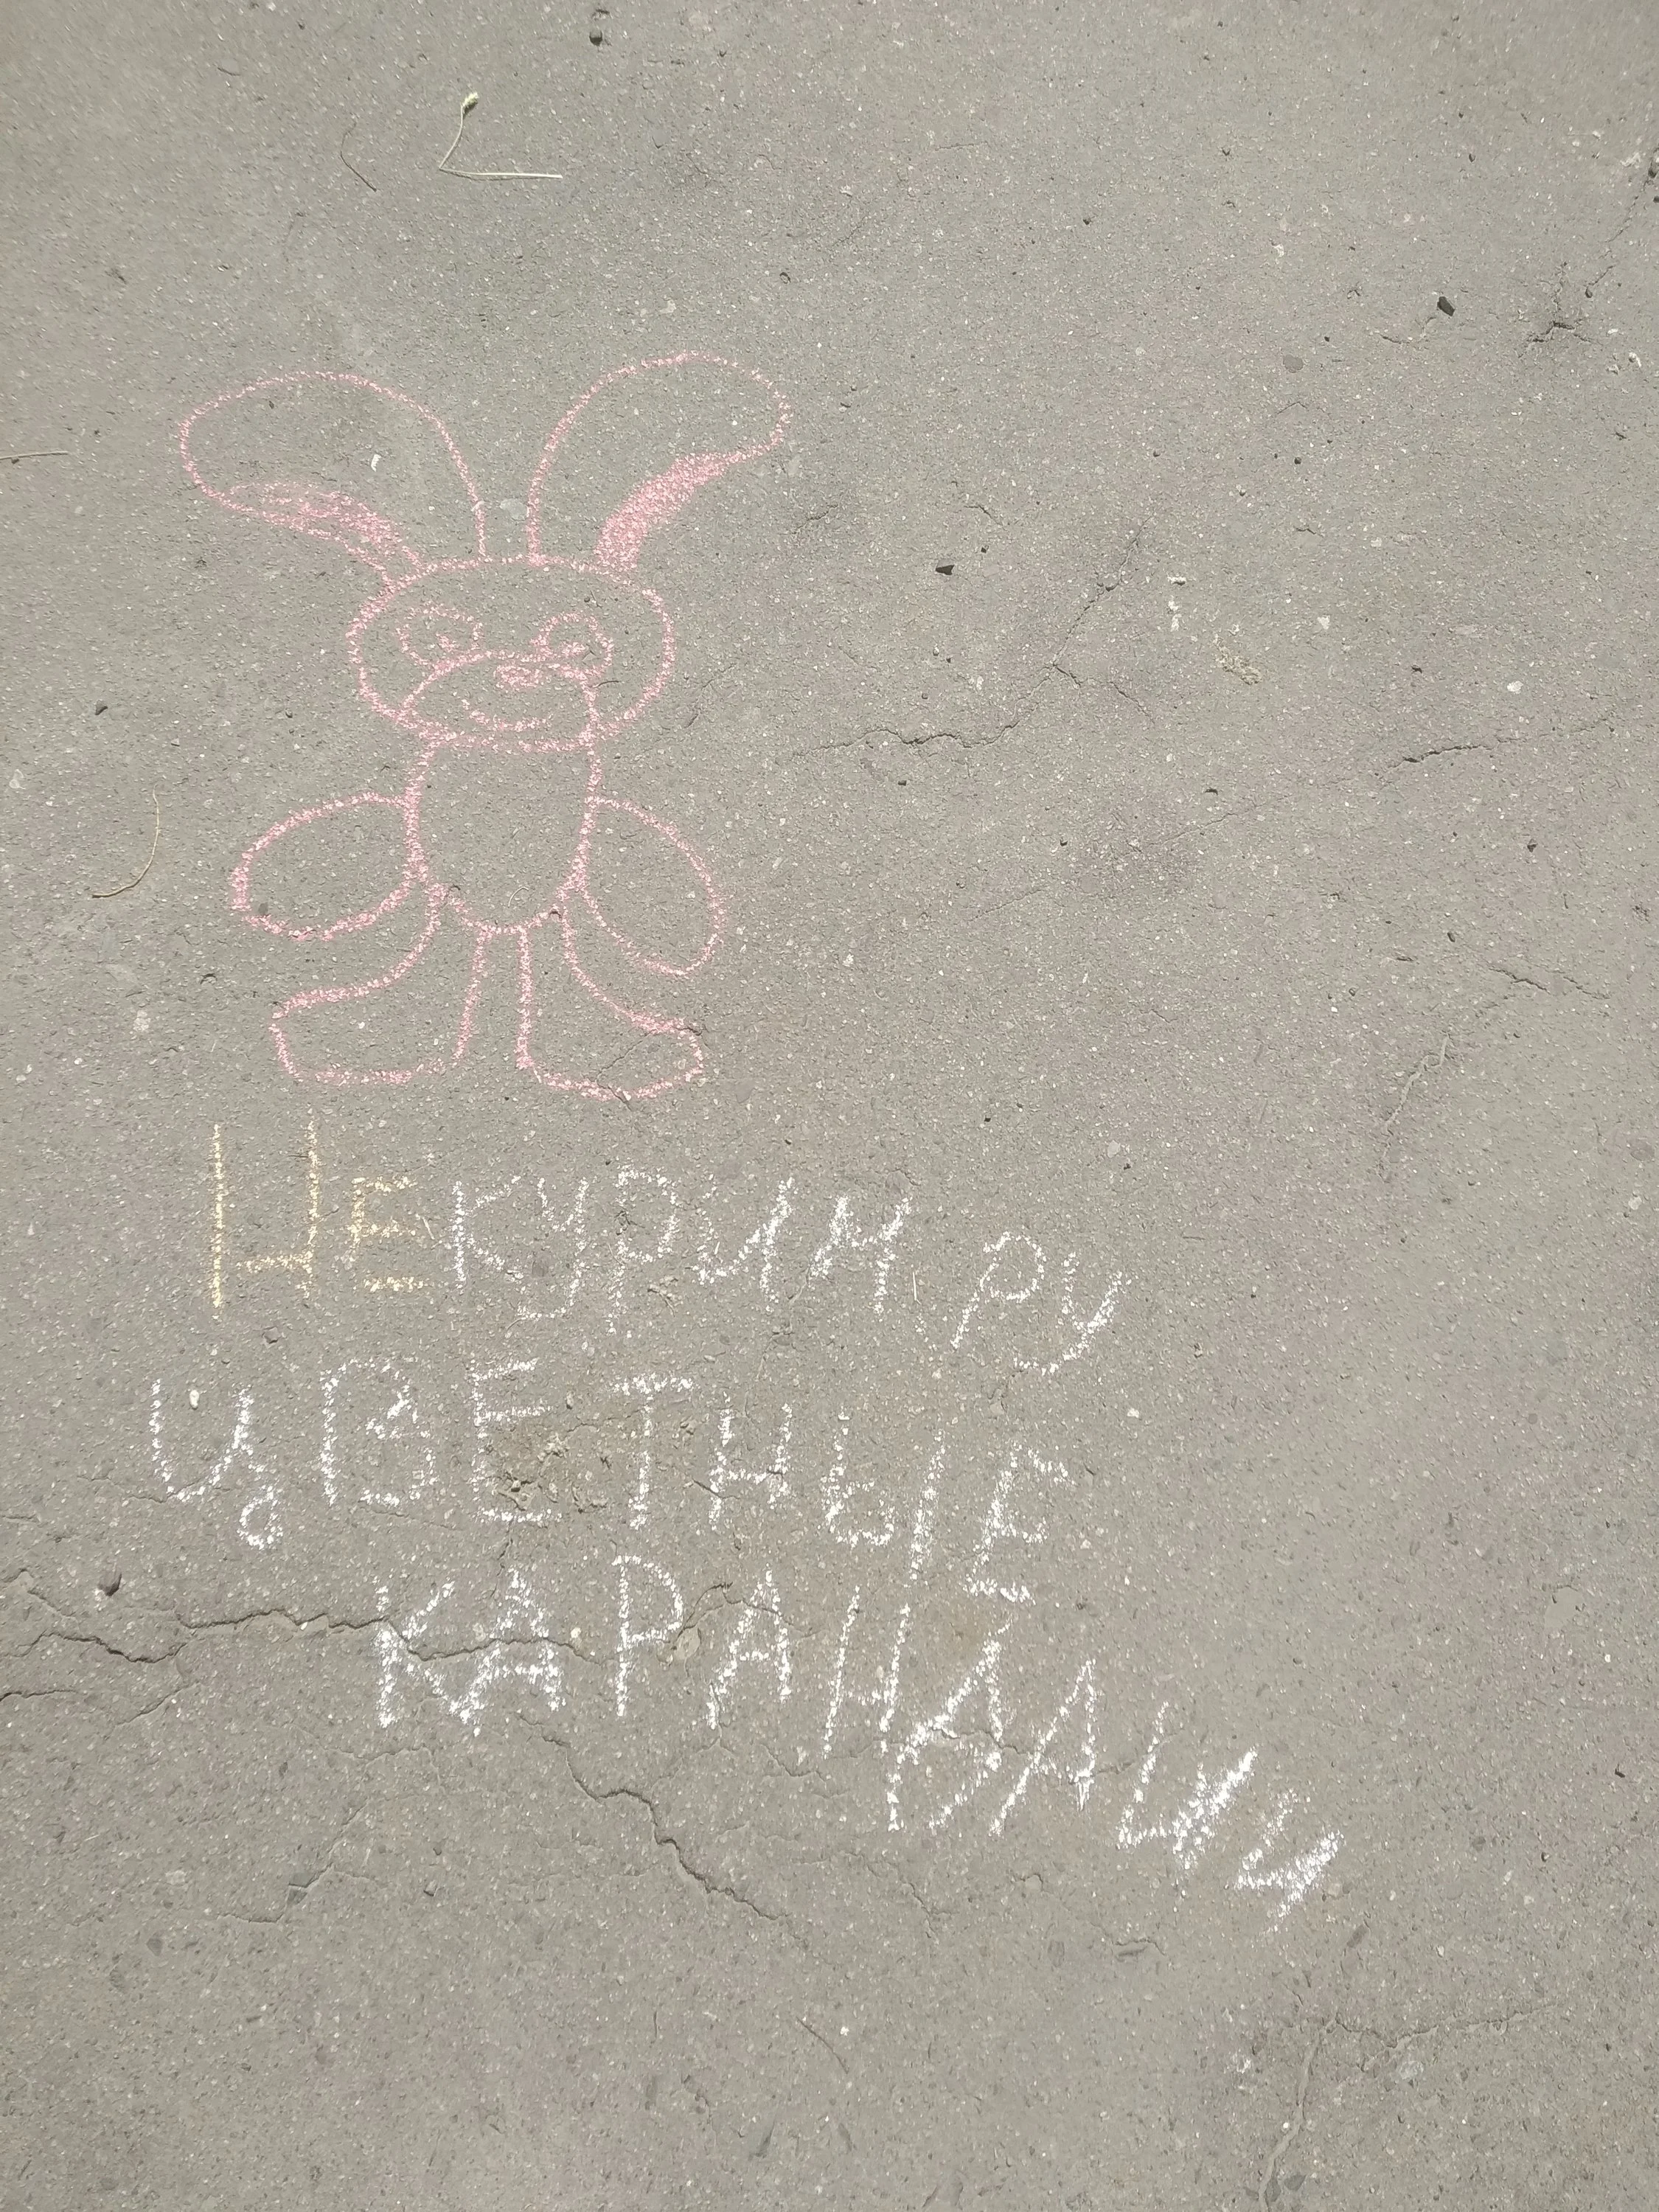 НЕ КУРИМ РУ
ЦВЕТНЫЕ
КАРАНДАЧИ